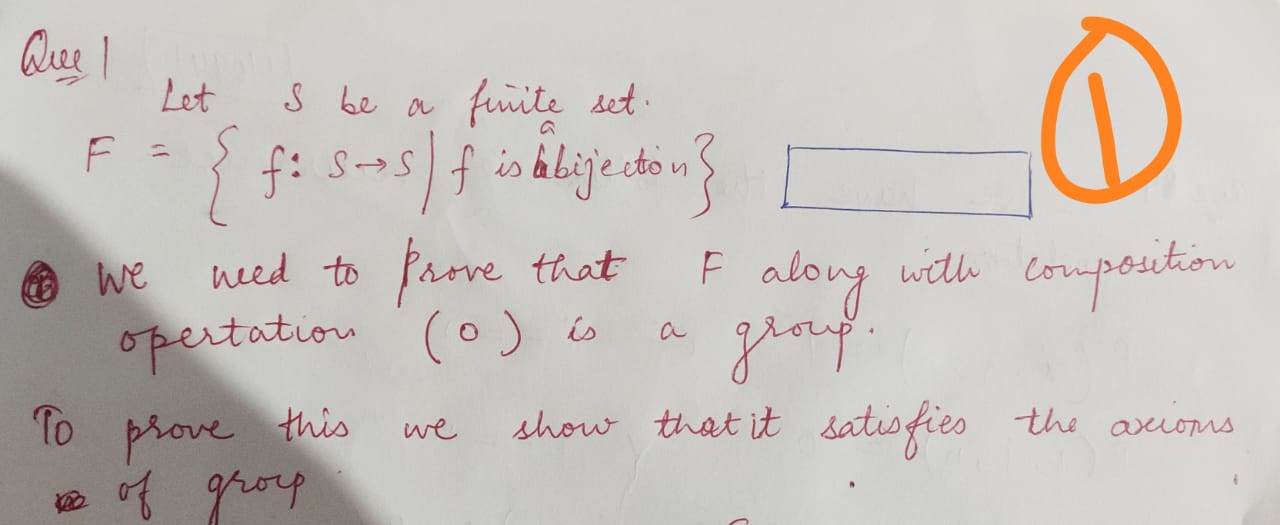 Que 1
Let S be a finite set.
F = { f: S→S | f is a bijection}
1
We need to prove that F along with composition
opertation (o) is a group.
To prove this we show that it satisfies the axioms
of group